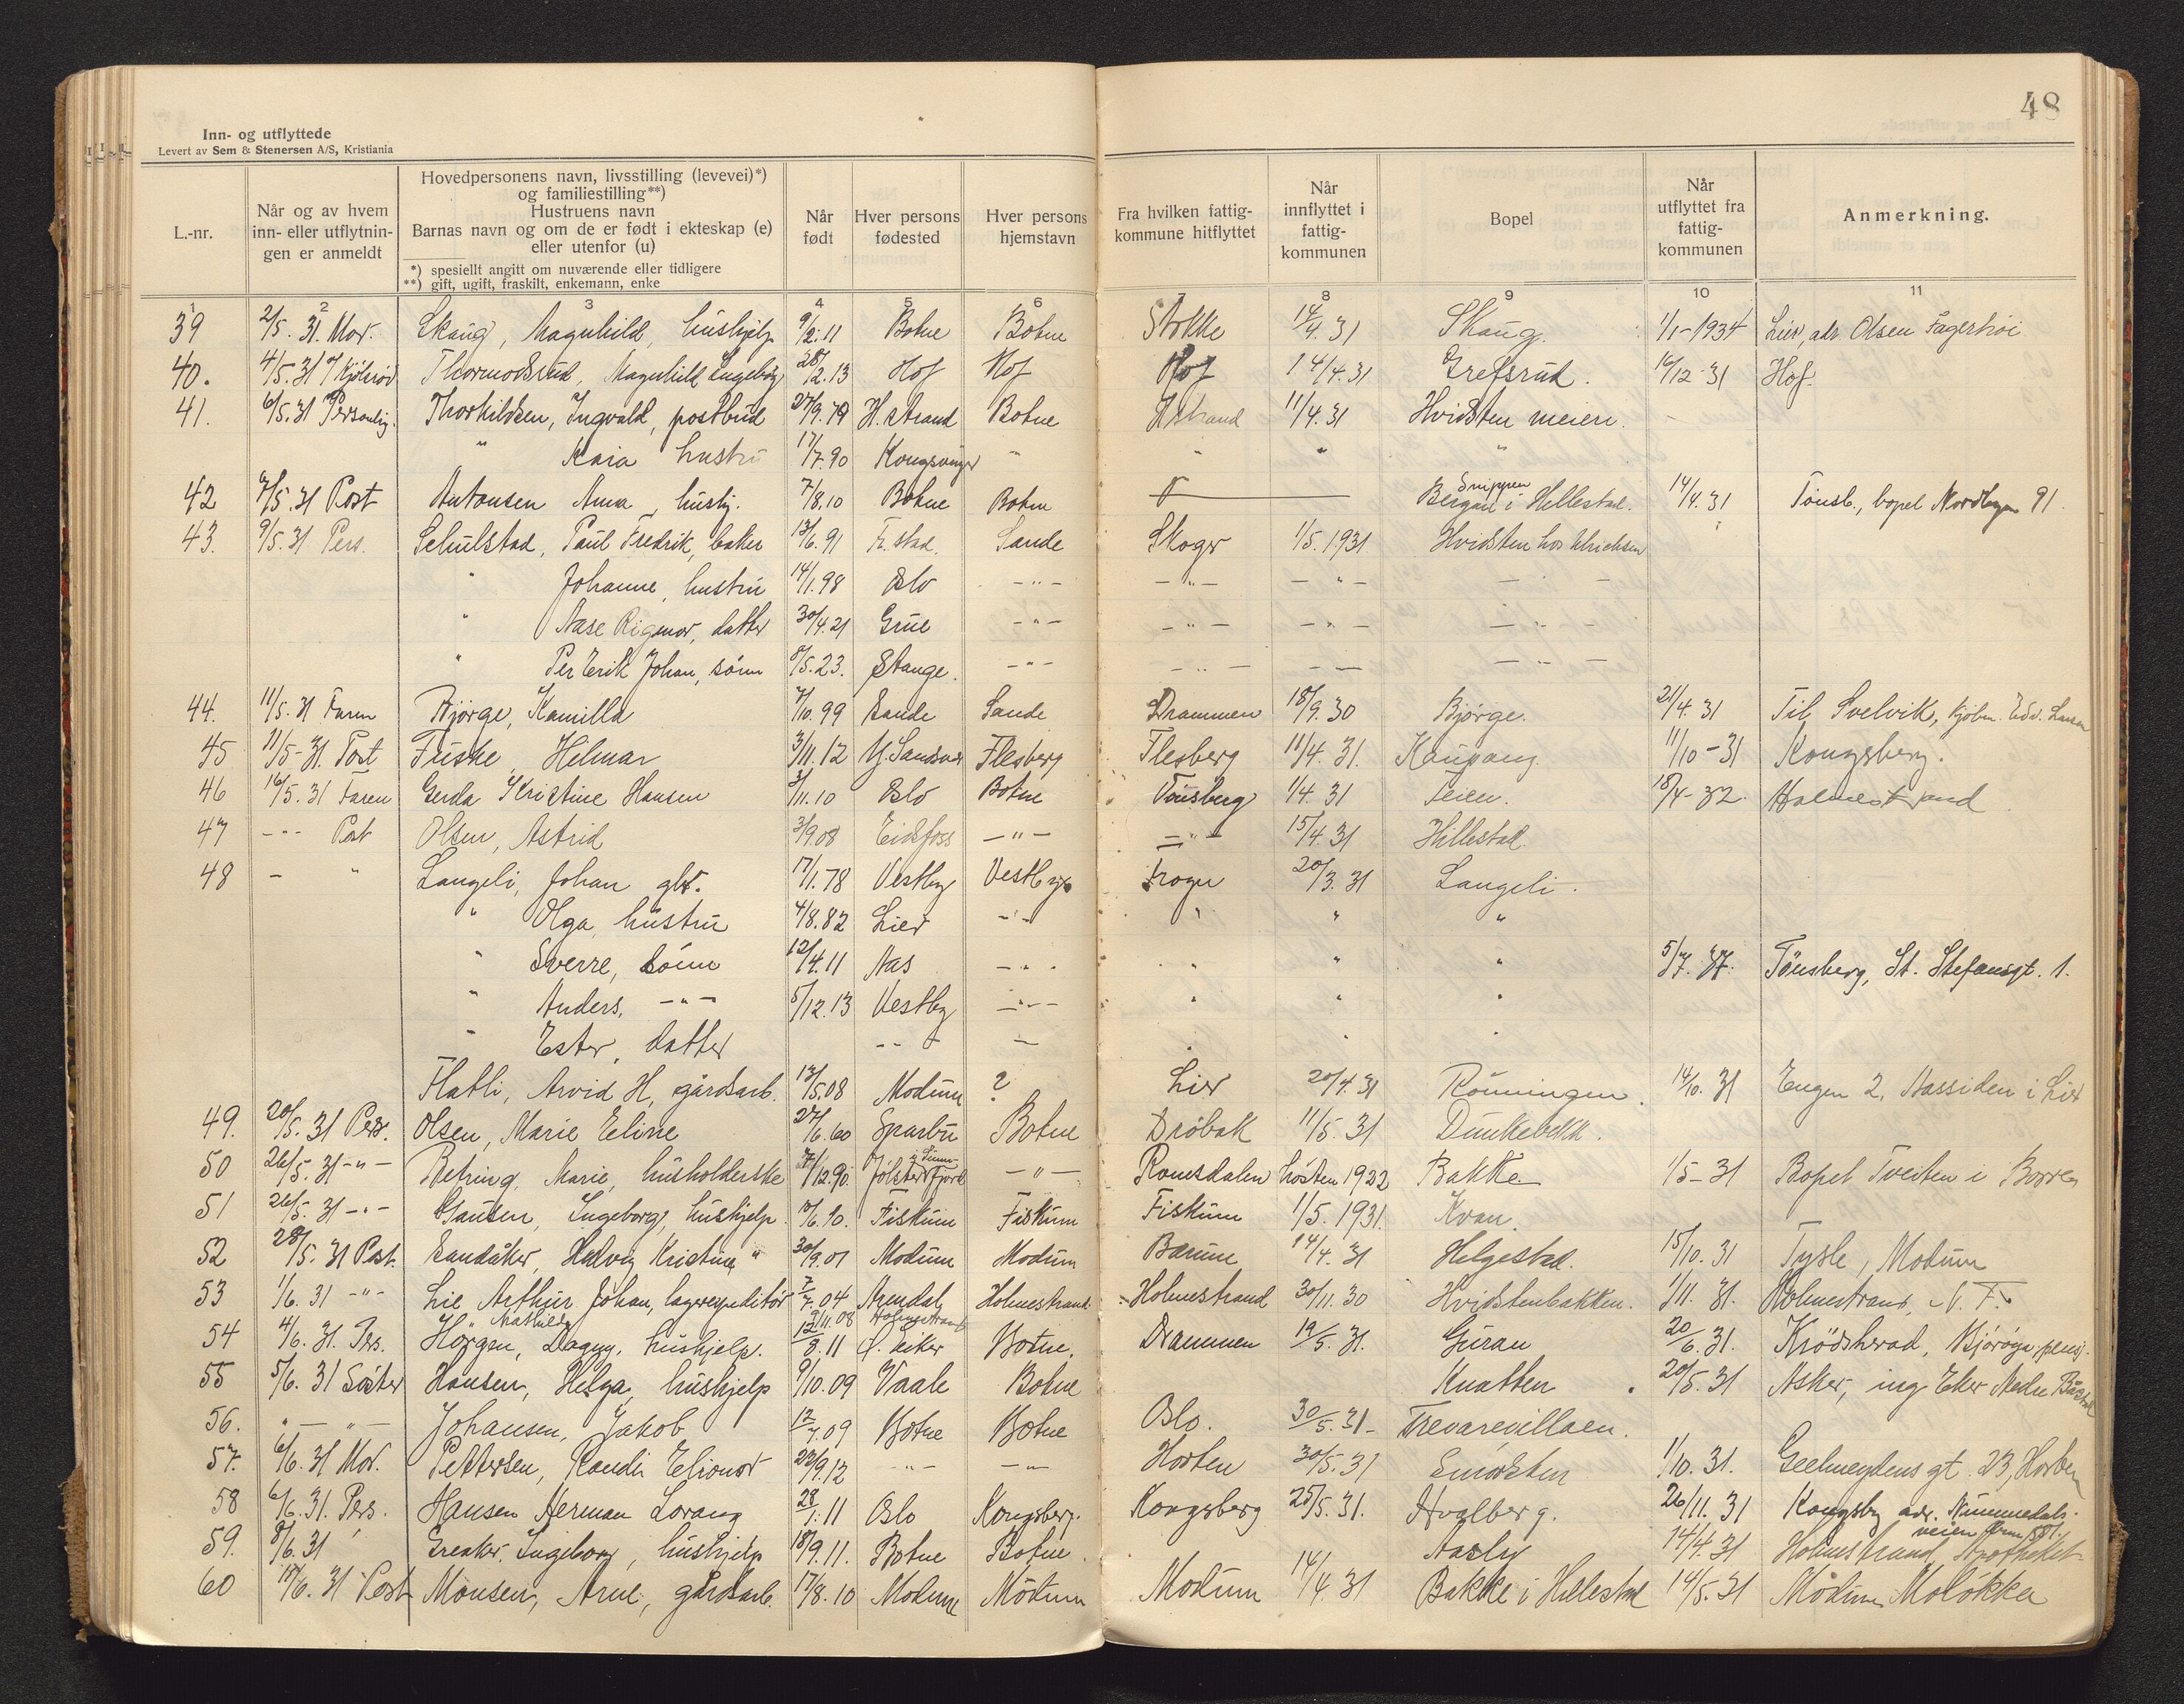 48
Inn- og utflyttede
Levert av Sem & Stenersen A/S, Kristiania
L.-nr.
Når og av hvem inn- eller utflytnin-gen er anmeldt
Hovedpersonens navn, livsstilling (levevei)*)
og familiestilling**)
Hustruens navn
Barnas navn og om de er født i ekteskap (e)
eller utenfor (u)
*) spesiellt angitt om nuværende eller tidligere
**) gift, ugift, fraskilt, enkemann, enke
Når født
Hver persons fødested
Hver persons hjemstavn
Fra hvilken fattig-kommune hitflyttet
Når innflyttet i fattig-kommunen
Bopel
Når utflyttet fra fattig-kommunen
Anmerkning.
1 2 3 4 5 6 7 8 9 10 11
39 2/5. 31. Mor. Skaug, Magnhild, hushjelp 9/2.11 Botne Botne Stokke 14/4.31 Skaug. 1/1-1934 Lier, adr. Olsen Fagerhøi
40. 4/5.31 Thormodsrud, Magnhild Ingeborg 28/2.13 Hof Hof Hof 14/4.31 Grefsrud. 16/12-31 Hof.
41. 6/5.31 Personlig. Thorkildsen, Ingvald, postbud 27/9.79 H.strand Botne H.strand 11/4.31 Hvidsten meieri. -
" Kaia hustru 17/7.90 Kongsvinger " " " "
42 7/5.31 Post Antonsen Anna, hushj. 7/8.10 Botne Botne Snippen Bergan i Hillestad. 14/4.31 Tønsb., bopel Nordbyen 91.
43. 9/5.31 Pers. Schulstad, Paul Fredrik, baker 13/6.91 Fr.stad. Sande Skoger 1/5.1931 Hvidsten hos Ulrichsen
" Johanne, hustru 14/1.98 Oslo -"- -"- -"- - -
" Aase Rigmor, datter 30/4.21 Grue -"- -"- -"- -"-
" Per Erik Johan, sønn 8/5.23. Stange. -"- -"- - - -"-
44. 11/5.31 Faren Bjørge, Kamilla 7/10.99 Sande Sande Drammen 18/9.30 Bjørge. 21/4.31 Til Svelvik, kjøbm. Edv. Larsen
45 11/5-31. Post Fuske, Helmar 3/11.12 Y. Sandsvær Flesberg Flesberg 11/4.31. Kaupang. 11/10-31 Kongsberg.
46 16/5.31 Faren Gerda Kristine Hansen 3/11.10 Oslo Botne Tønsberg 1/4.31 Teien. 18/4-32. Holmestrand.
47 -"- Post Olsen, Astrid 3/9.08 Eidsfoss -"- -"- 15/4.31 Hillestad.
48 - " Langeli, Johan gbr. 17/1.78 Vestby Vestby Frogn 20/3.31 Langeli.
" Olga, hustru 4/8.82 Lier -"- " " "
" Sverre, sønn 12/4.11 Aas -"- " " " 5/7.37. Tønsberg, St. Stefansgt. 1.
" Anders, -"- 5/12.13 Vestby -"- " " "
" Ester, datter -"- - " " "
Flatli, Arvid H, gårdsarb. 13/5.08 Modum ? Lier 20/4.31 Rønningen. 14/10.31 Engen 2, Aassiden i Lier
49. 20/5.31 Pers. Olsen, Marie Eline 27/6.60 Sparbu Botne Drøbak 11/5.31 Dunkebekk.
50 26/5.31-"- Betring, Marie, husholderske 7/12.90. Jølster i Sunnfjord -"- Romsdalen høsten 1922 Bakke 1/5-31 Bopel Tveiten i Borre
51 26/5.31-"- Ingeborg, hushjelp. 10/6.10. Fiskum Fiskum Fiskum 1/5.1931. Kvan.
52 28/5.31 Post. Sandåker, Halvig Kristine " 30/9.01 Modum Modum Bærum 14/4.31 Helgestad. 15/10.31 Tysle, Modum
53 1/6.31 -"- Lie Arthur Johan, lagerexpeditør 7/7.04 Arendal Holmestrand Holmestrand 30/11.30 Hvidstenbakken. 1/11.31. Holmestrand, N. F.
" Mathilde 9/11.08 Holmestrand
54 4/6.31. Pers. Horgen, Dagny, hushjelp. 12/8.11 Ø. Eiker Botne. Drammen 19/5.31. Guran 20/6.31. Krødsherad, Bjørøya pensj.
55 5/6.31 Søster Hansen, Helga, hushjelp 9/10.09 Vaale Botne Knatten 20/5.31 Asker, ing. Eker Nedre
56. " - " - Johansen, Jakob 12/7.09 Botne Botne Oslo. 30/5.31- Trevarevillaen.
57. 6/6.31 Mor. Pettersen, Randi Elionor 23/9.12 -"- -"- Horten 30/5.31 Smørsten 1/10.31. Geelmeydens gt. 23, Horten
58 6/6.31. Pers. Hansen Herman Lorang 28/1.11 Oslo Kongsberg. Kongsberg 25/5.31. Hvalberg. 26/11.31 Kongsby adr. Nummedals-
veien
59. 8/6.31 Greaker, Ingeborg, hushjelp 18/9.11. Botne Botne. Aasly 14/4.31 Holmestrand Apotheket
60 17/6.31 Post Monsen, Arne, gårdsarb. 17/8.10 Modum Modum Modum 14/4.31 Bakke i Hillestad 14/5.31 Modum Moløkka